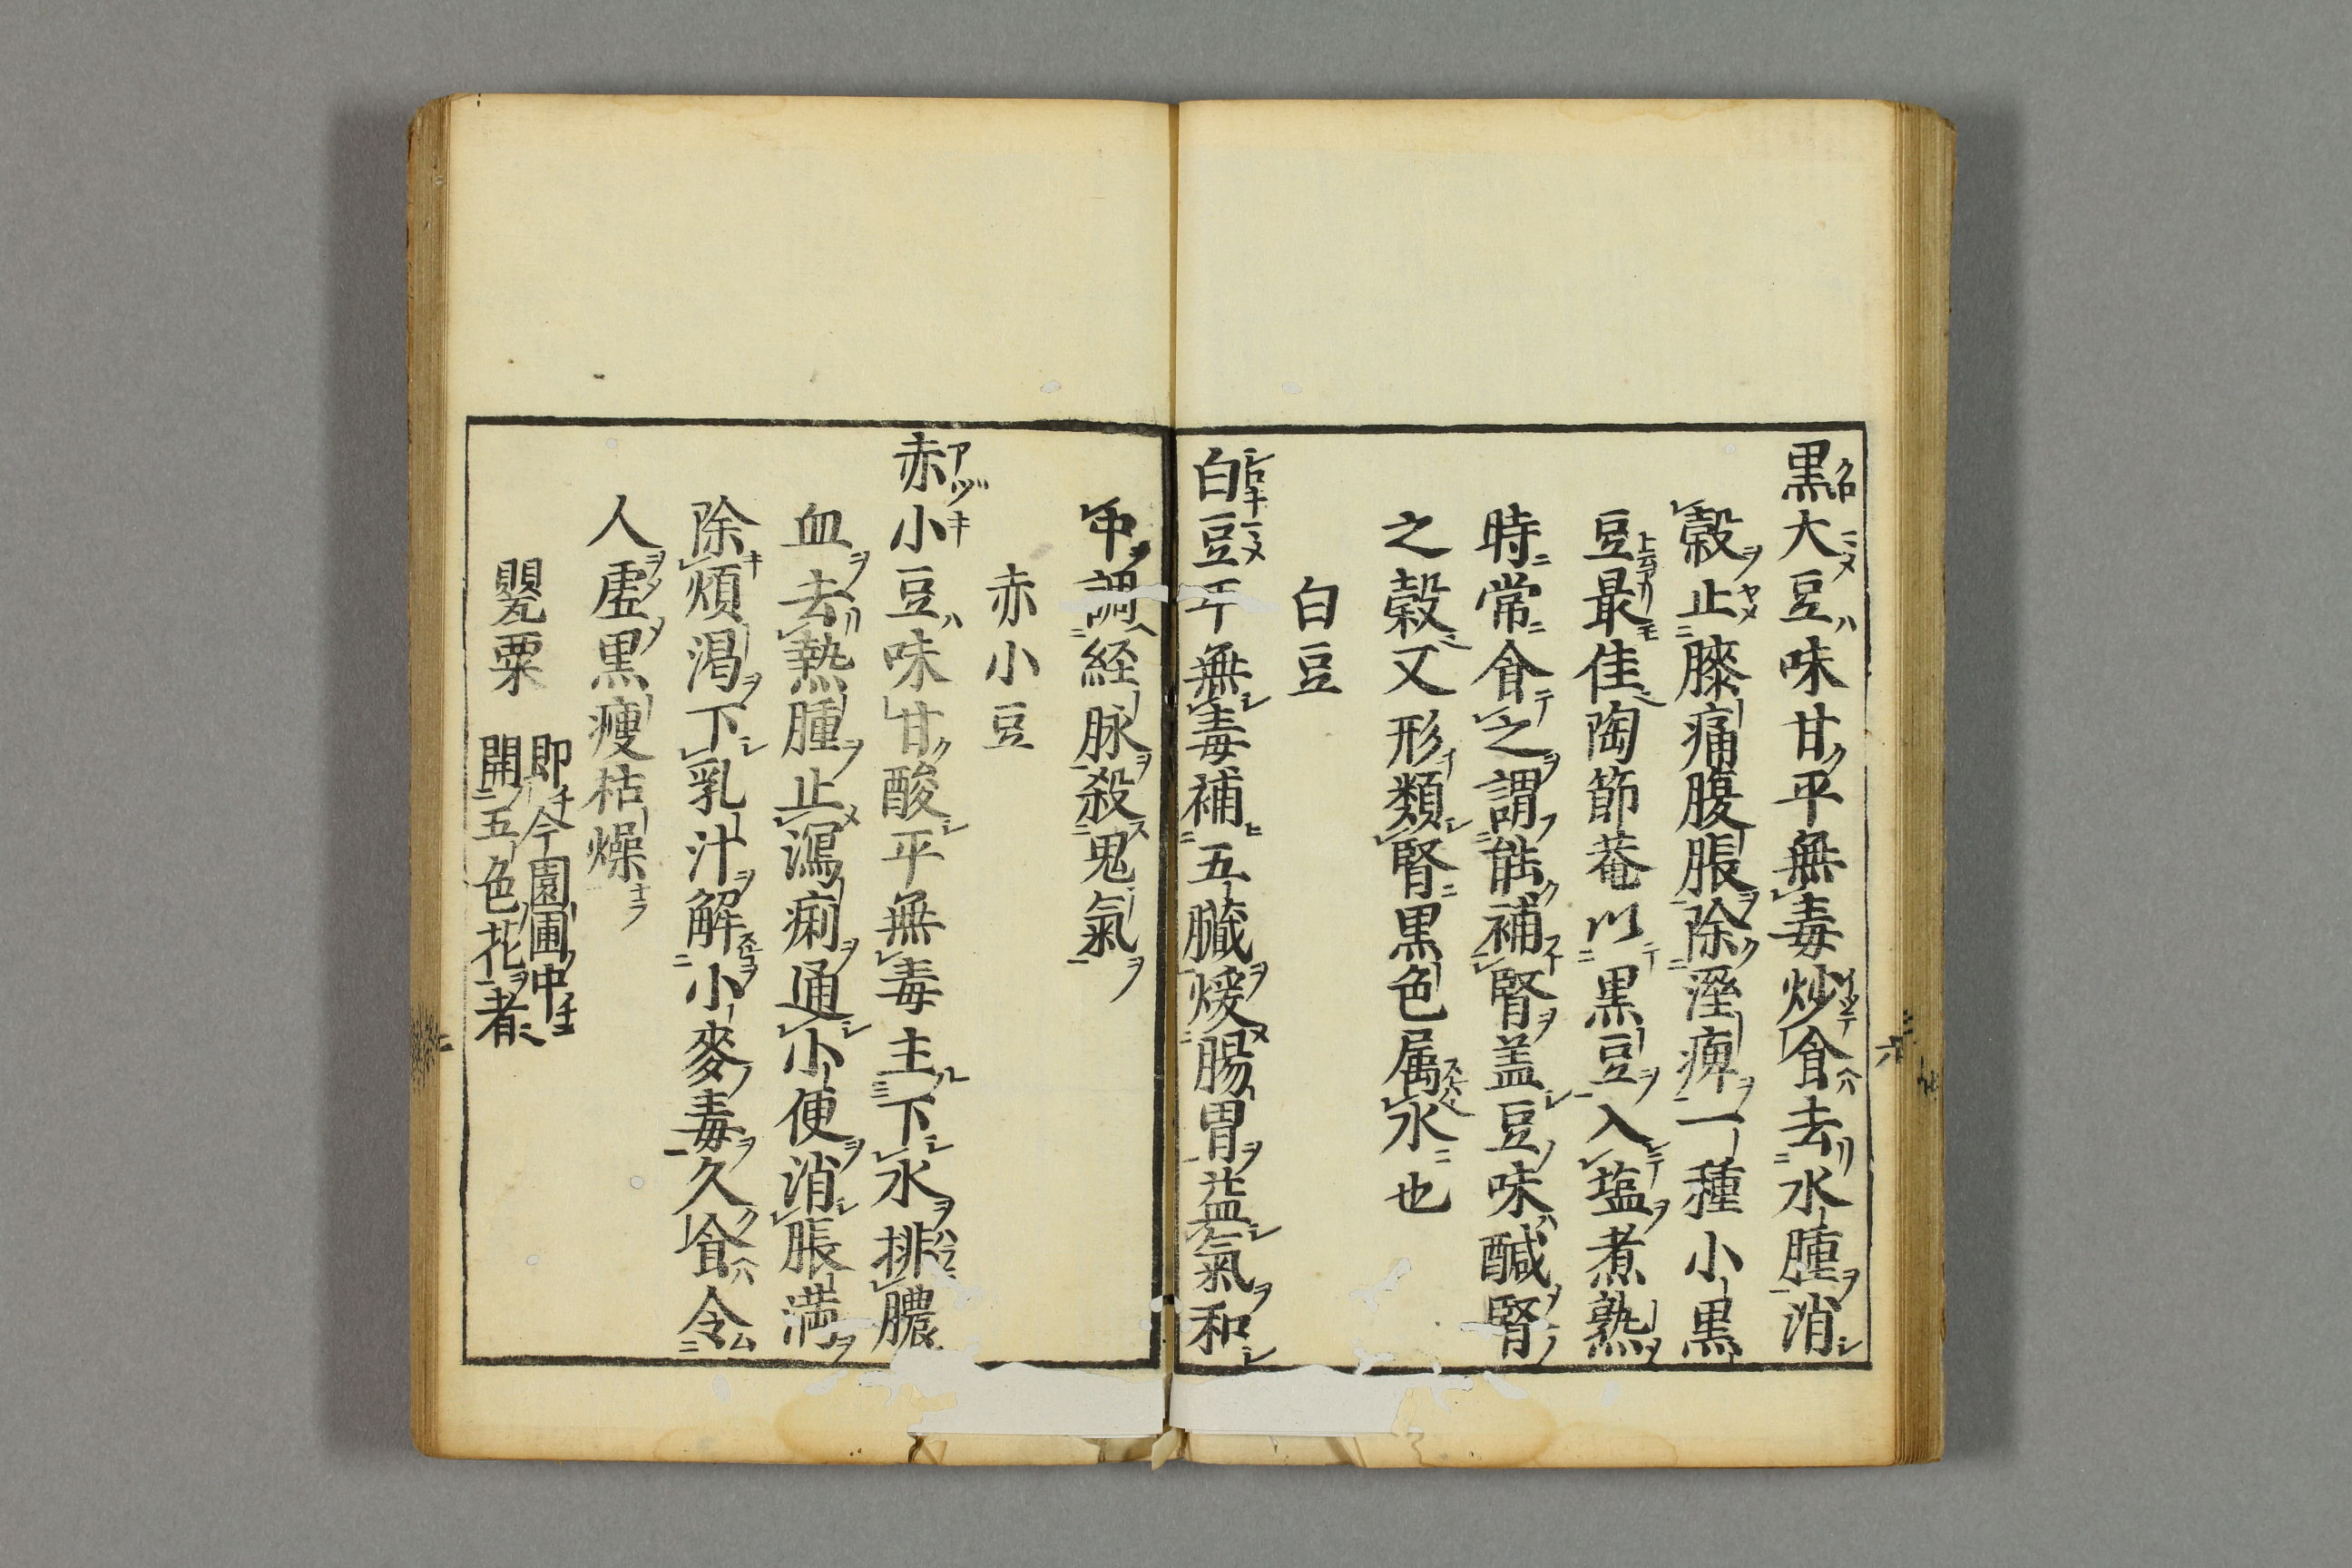 黒大豆味甘平無毒炒食去水腫消
穀止膝痛腹脹除溼痺一種小黒
豆最佳陶節菴以黒豆入塩煮熟
時常食之謂能補腎盖豆味醎腎
之穀又形類腎黒色属水也
白豆
白豆平無毒補五臓煖腸胃益氣和
中調経脉殺鬼氣
赤小豆
赤小豆味甘酸平無毒主下水排膿
血去熱腫止瀉痢通小便消脹満
除煩渇下乳汁解小麥毒久食令
人虚黒痩枯燥
甖粟
即今園圃中
開五色花者